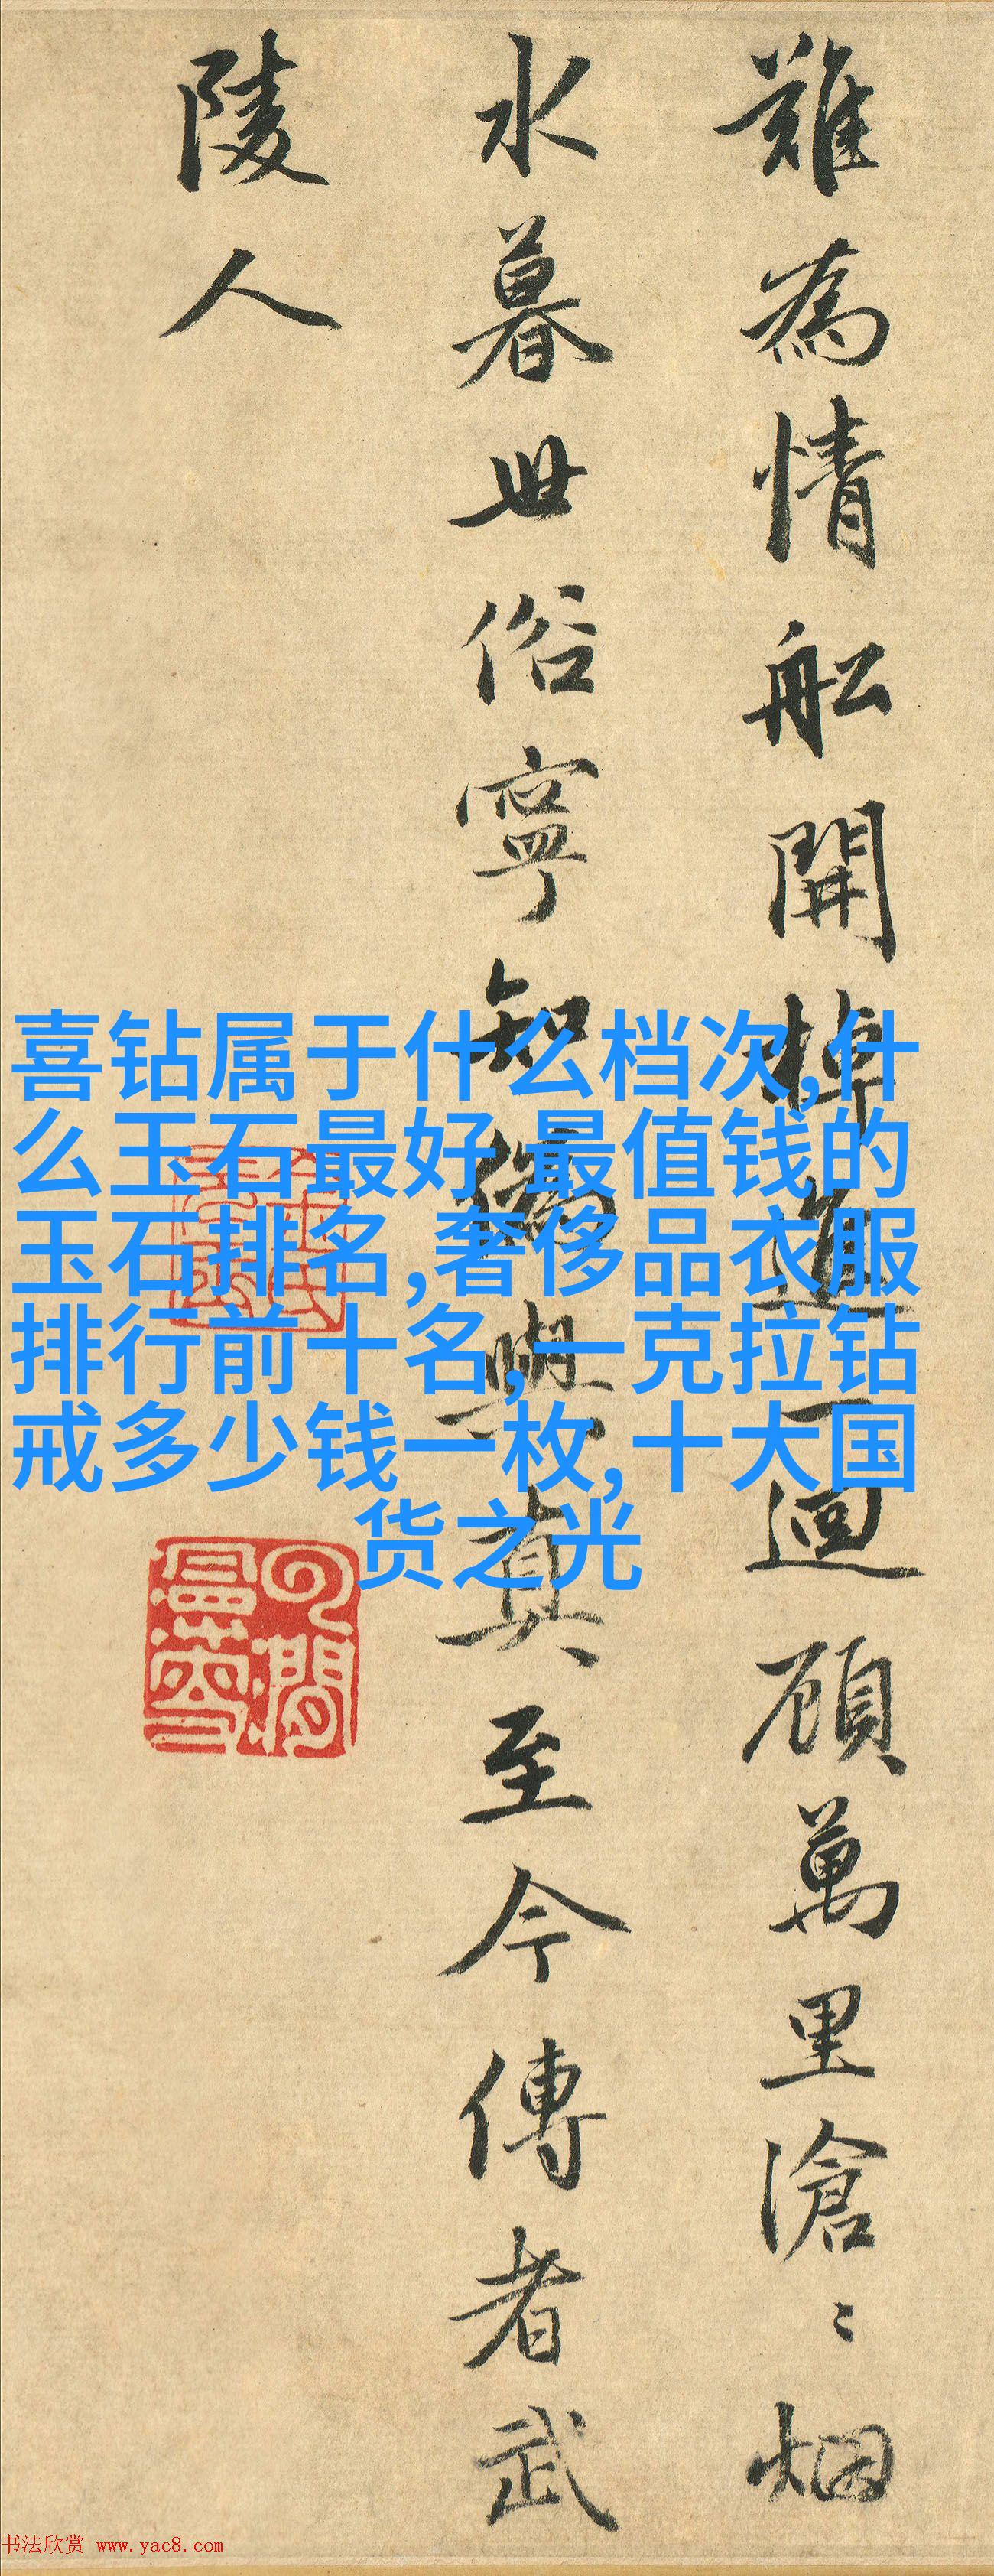 難為情舩開棹進一迴顧萬里滄〻烟
水暮世俗寧知偽與真至今傳者武
陵人
喜钻属于什么档次,什
么玉石最好 最值钱的
玉石排名,奢侈品衣服
排行前十名,一克拉钻
戒多少钱一枚,十大国
货之光
书法欣赏 www.yac8.com